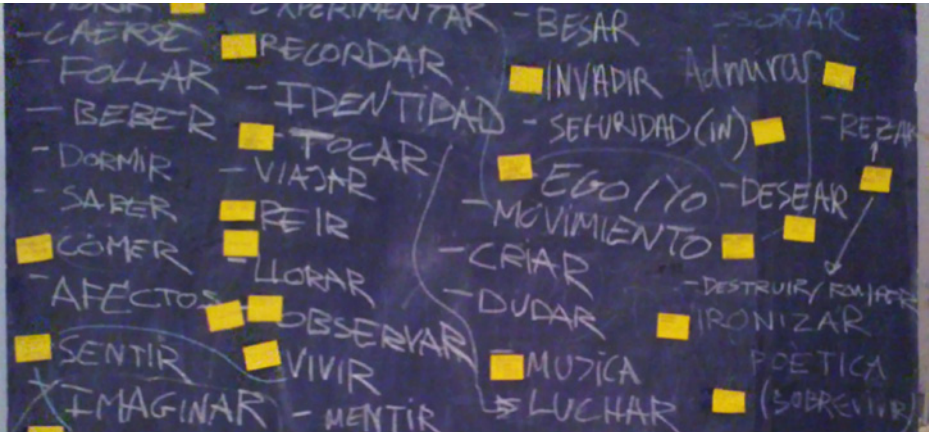 - CAERSE
- FOLLAR
- BEBER
- DORMIR
- SABER
COMER
- AFECTOS
SENTIR
IMAGINAR
EXPERIMENTAR
RECORDAR
- IDENTIDAD
- TOCAR
- VIAJAR
REIR
- LLORAR
OBSERVAR
VIVIR
- MENTIR
- BESAR
INVADIR
- SEGURIDAD (IN)
EGO/YO
- MOVIMIENTO
- CRIAR
- DUDAR
MUSICA
LUCHAR
- SOÑAR
Admirar
- REZAR
- DESEAR
- DESTRUIR/ROMPER
IRONIZAR
POETICA
(SOBREVIVIR)